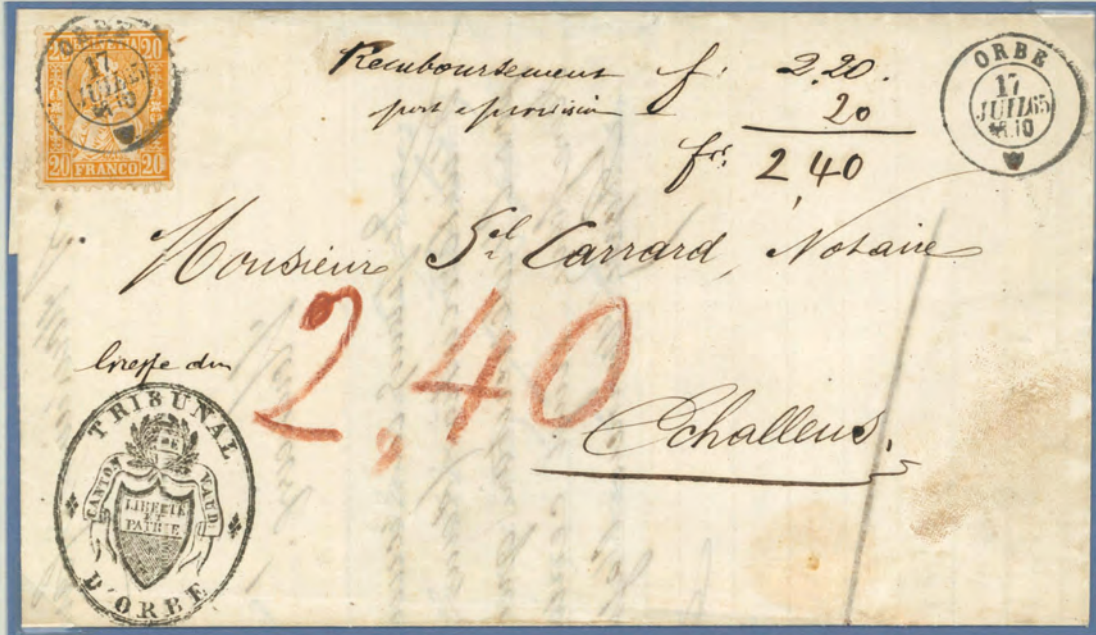 ORBE
17
JUIL 65
20 HELVETIA 20
20 FRANCO 20
Remboursement f: 2,20.
port & provision 20
frs: 2 40
ORBE
17
JUIL 65
10
Monsieur Sl Carrard, Notaire
2,40
Greffe du
Echallens.
TRIBUNAL
CANTON DE VAUD
LIBERTÉ
ET
PATRIE
D'ORBE